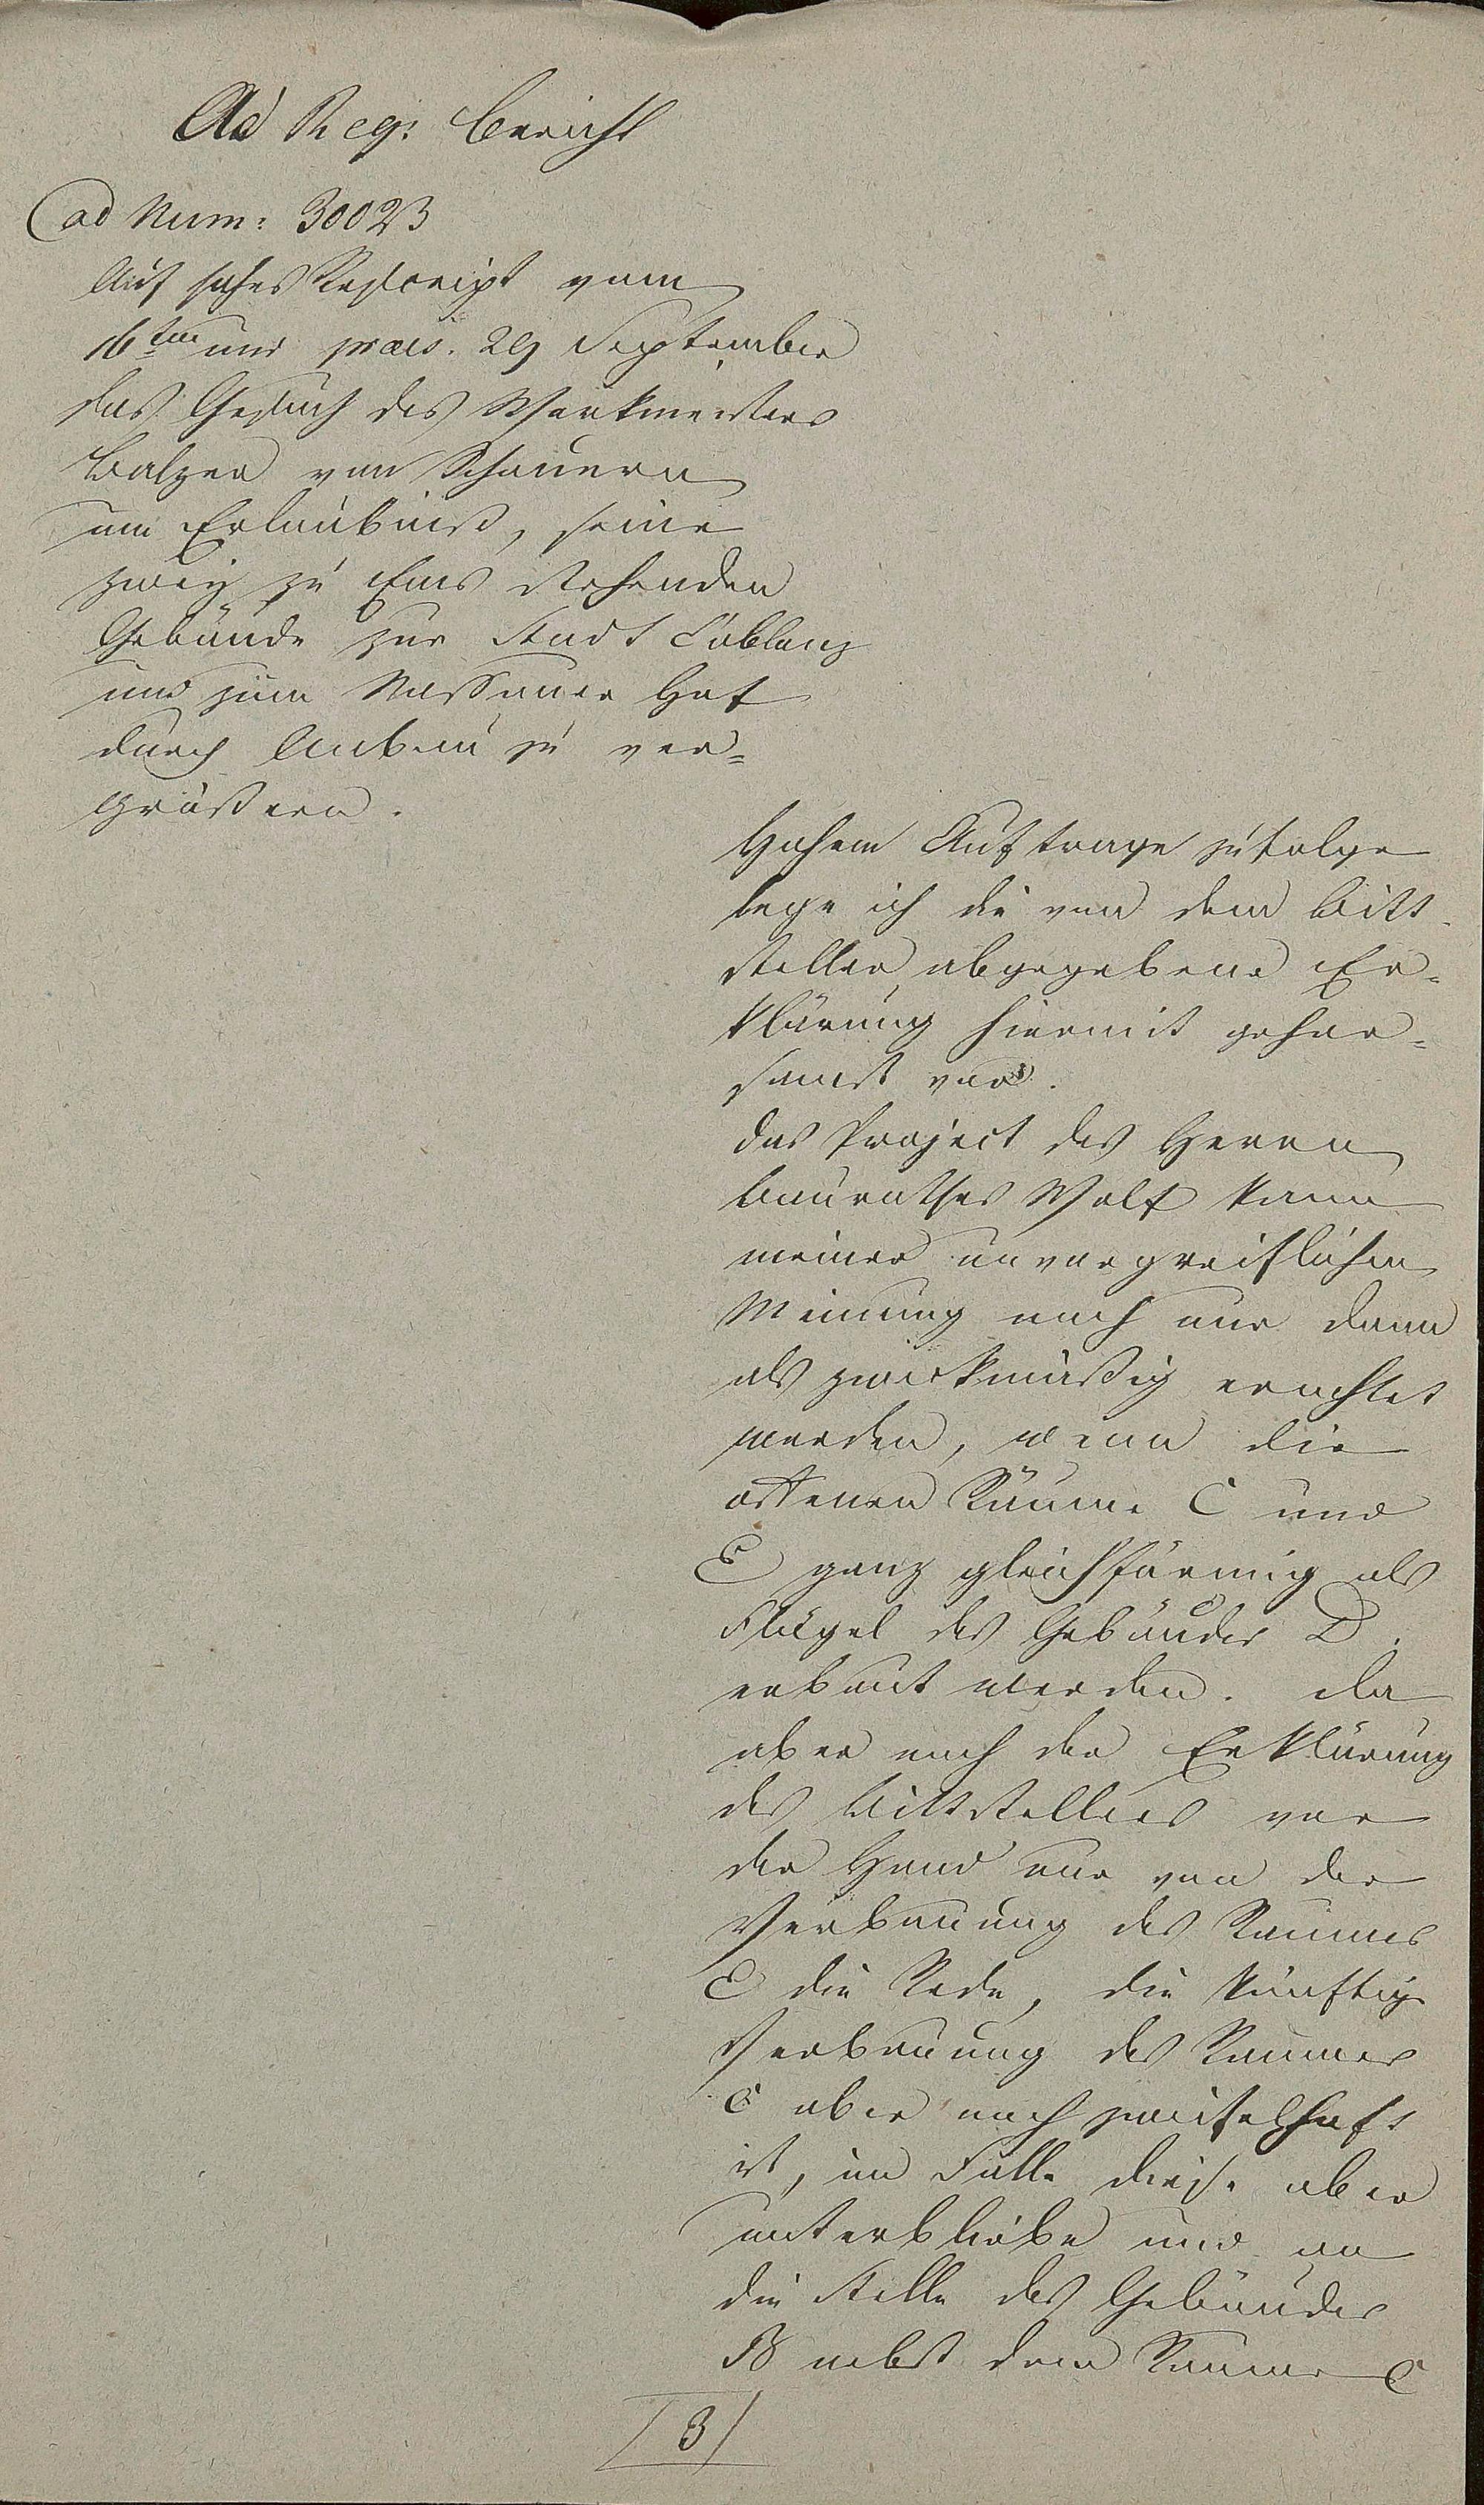 Ad Reg: Bericht
ad Num: 30023
Auf hohes Rescript vom
16ten und praes. 29 September
das Gesuch des Werkmeisters
Balzer von Schauern
um Erlaubniß, seine
zwey zu Ems stehenden
Gebäude zur Stadt Coblenz
und zum Nassauer Hof
durch Anbau zu ver=
größern.
Hohem Auftrage zufolge
lege ich die von dem Bitt-
steller abgegebene Er=
klärung hiermit gehor=
samst vor.
Das Project des Herrn
Baurathes Wolf kann
meiner unvorgreiflichen
Meinung nach nur dann
als zweckmäßig erachtet
werden, wenn die
offenen Räume C und
E ganz gleichförmig als
Flügel des Gebäudes D.
erbaut werden. Da
aber nach der Erklärung
des Bittstellers vor
der Hand nur von der
Verbauung des Raumes
E die Rede, die künftige
Verbauung des Raumes
C aber noch zweifelhaft
ist, im Falle diese aber
unterbliebe und an
die Stelle des Gebäudes
B nebst dem Raume C
/ 3 /